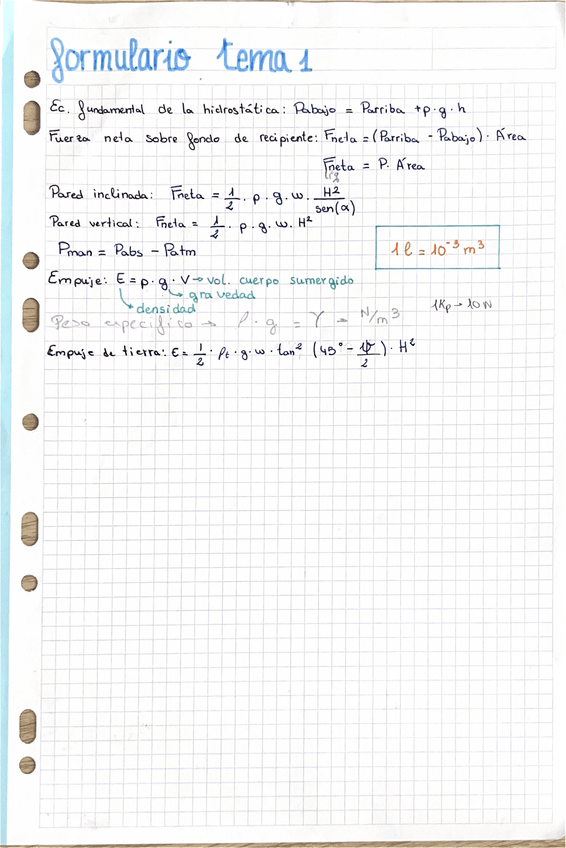 formulario tema 1
Ec. fundamental de la hidrostática: Pabajo = Parriba + ρ · g · h
Fuerza neta sobre fondo de recipiente: Fneta = (Parriba - Pabajo) · Área
Fneta = P. Área
Pared inclinada: Fneta = 1/2 · ρ · g · w · H²/sen(α)
Pared vertical: Fneta = 1/2 · ρ · g · w · H²
Pman = Pabs - Patm
1 l = 10⁻³ m³
Empuje: E = ρ · g · V → vol. cuerpo sumergido
gravedad
densidad
1Kp → 10 N
Peso específico → ρ · g = γ → N/m³
Empuje de tierra: E = 1/2 · ρt · g · w · tan² (45° - φ/2) · H²